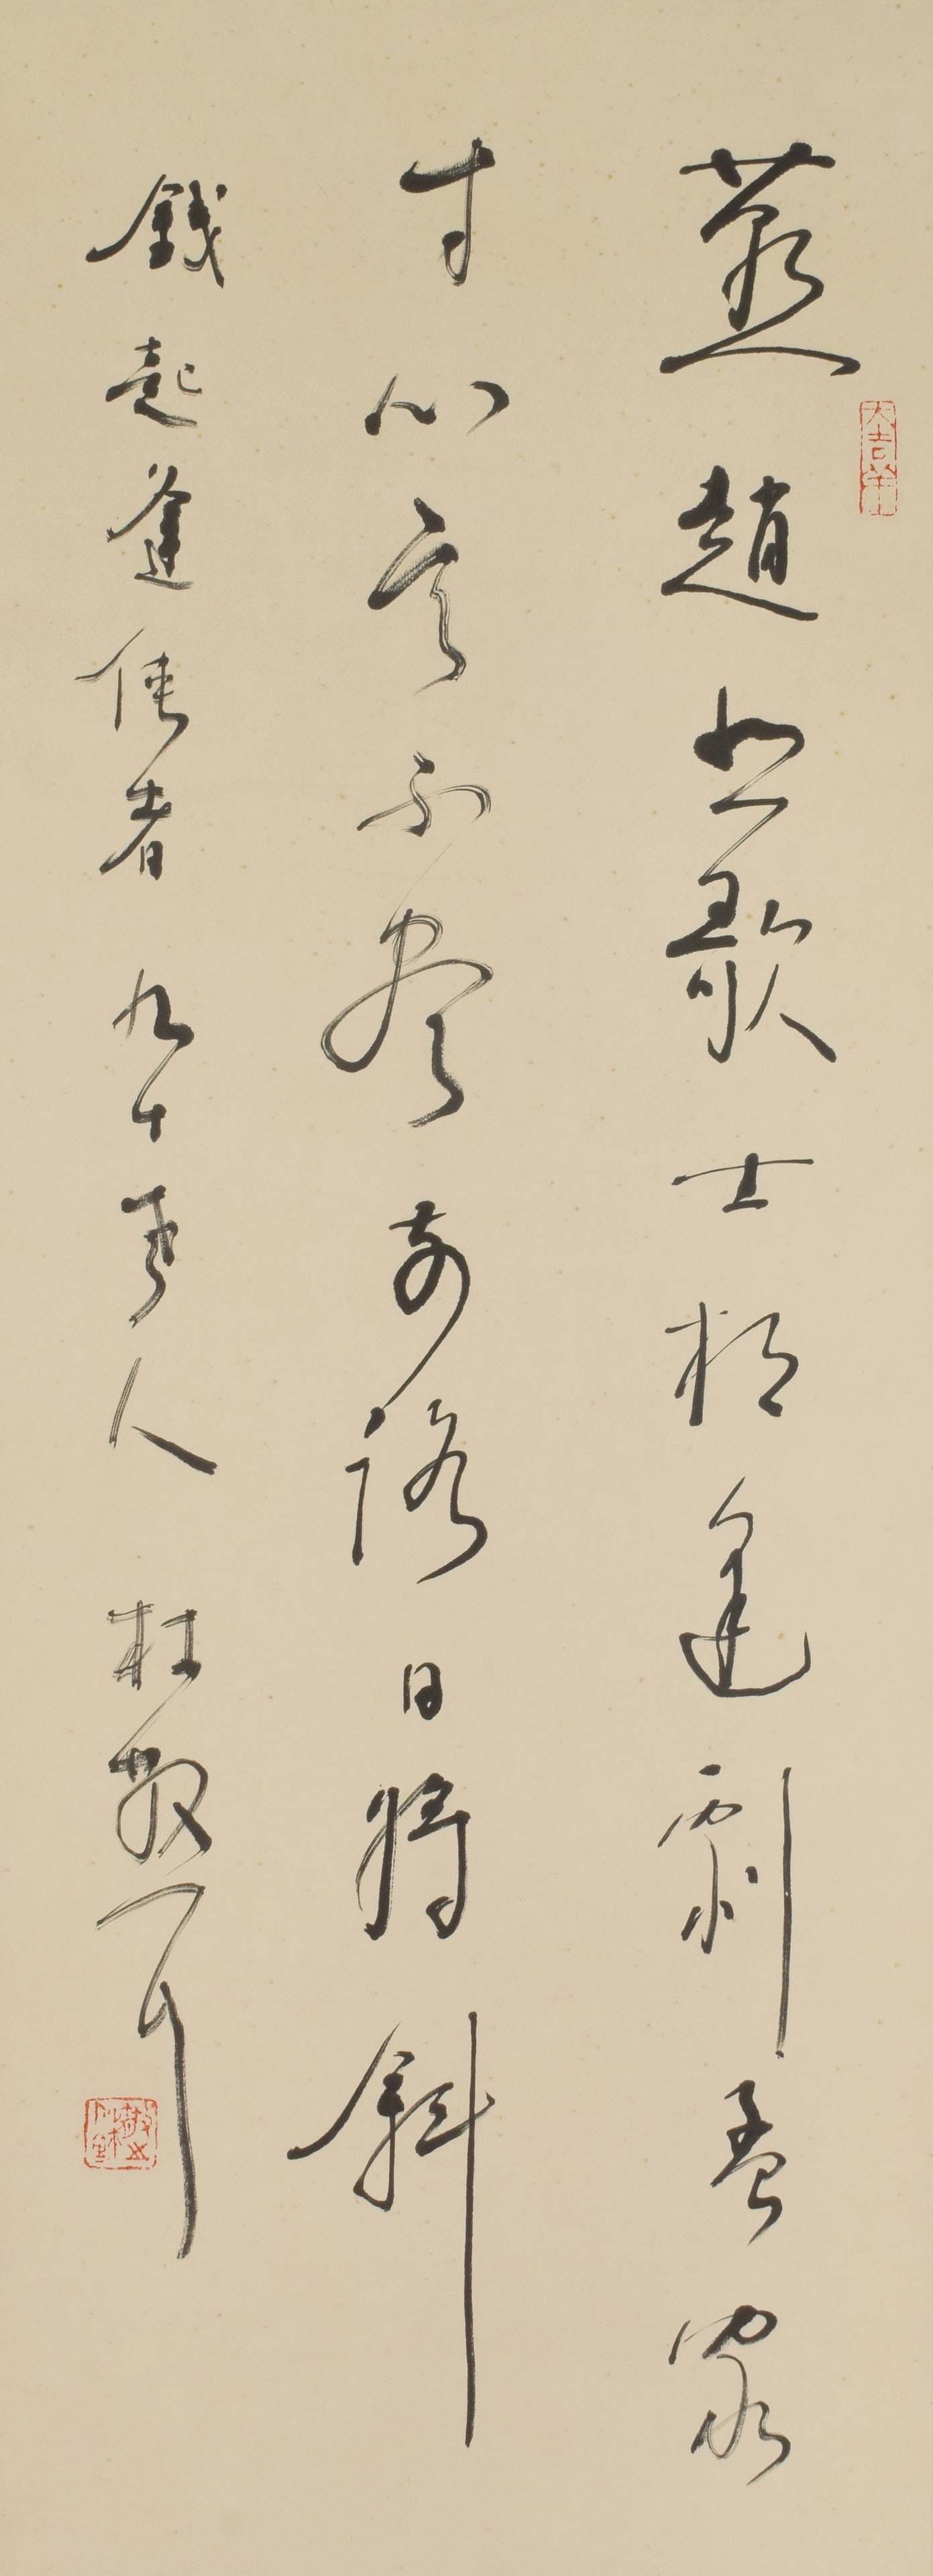 燕趙悲歌士相逢劇孟家
寸心言不盡前路日將斜
錢起逢俠者九十老人杜敬
大吉羊